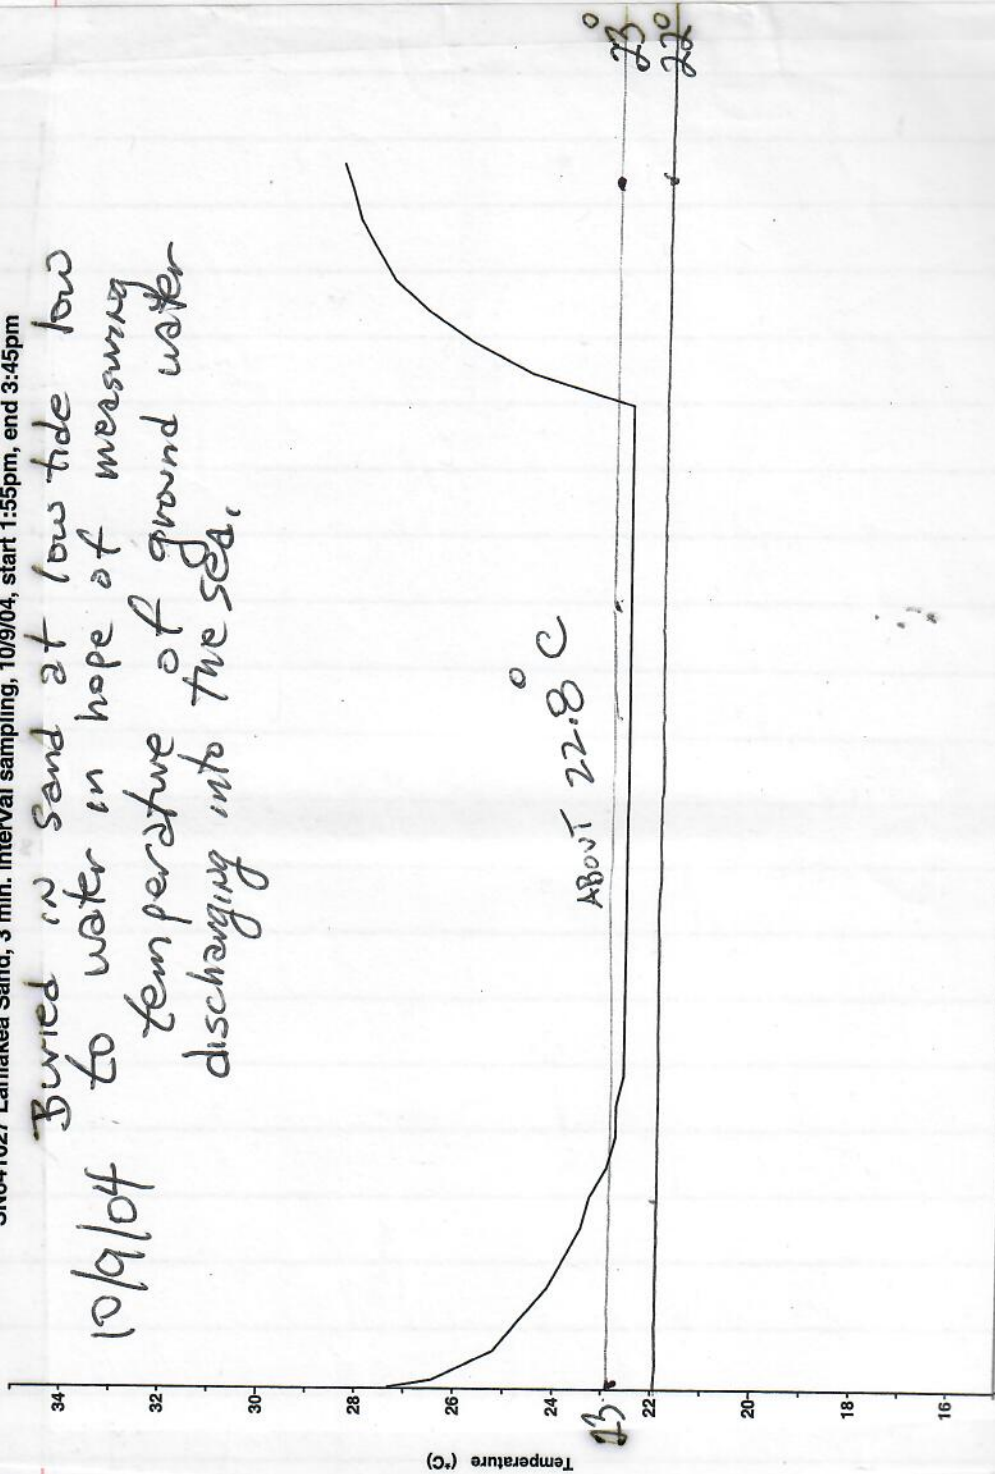 Laniakea Sand, 3 min. interval sampling, 10/9/04, start 1:55pm, end 3:45pm
10/9/04 Buried in sand at low tide low
to water in hope of measuring
temperature of ground water
discharging into the sea.
ABOUT 22.8° C
23°
22°
23
Temperature (°C)
34
32
30
28
26
24
22
20
18
16